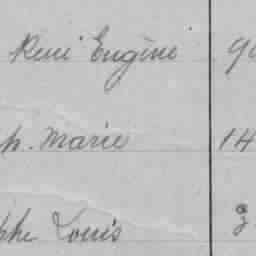 René Eugène 90
ph. Marie 14
phe Louis 3